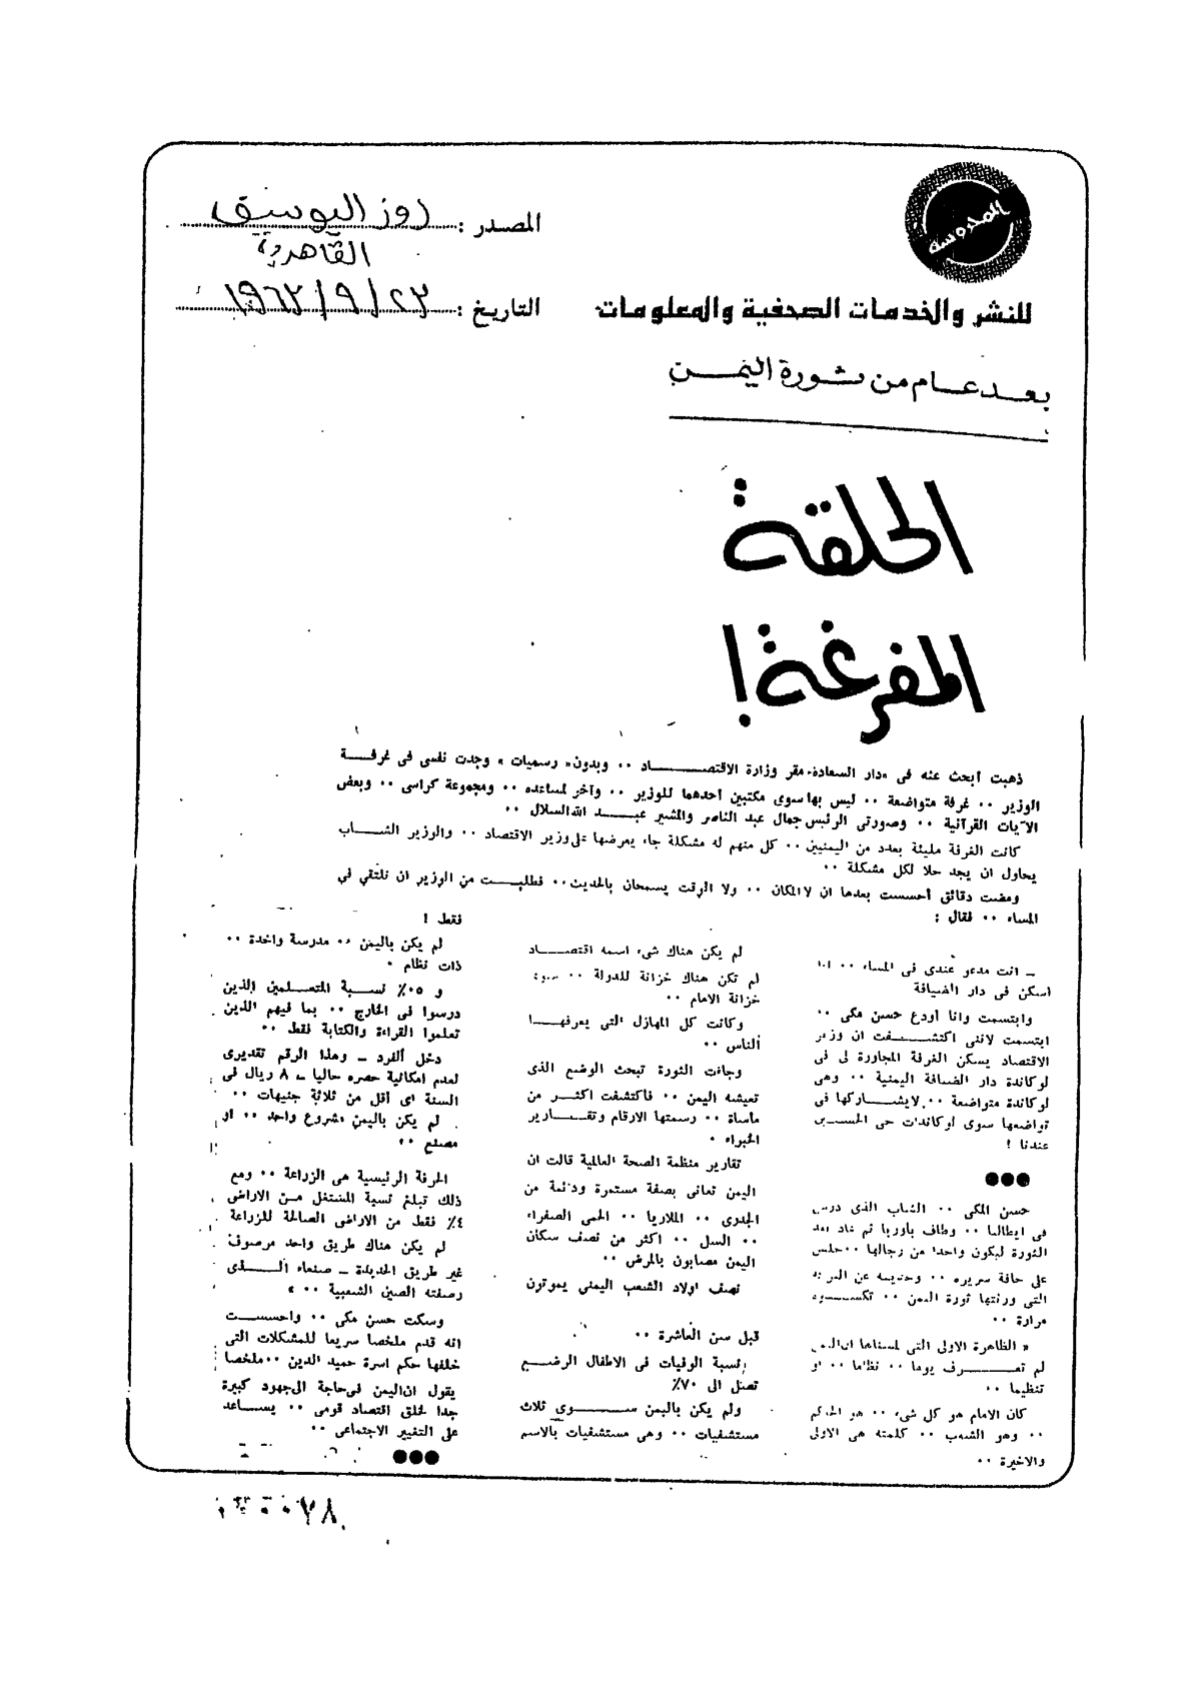 المحروسة
للنشر والخدمات الصحفية والمعلومات
المصدر : روز اليوسف
القاهرية
التاريخ : ٢٣ / ٩ / ١٩٦٣
بعد عام من ثورة اليمن
الحلقة
المفرغة !
ذهبت أبحث عنه فى «دار السعادة» مقر وزارة الاقتصاد ٠٠ وبدون « رسميات » وجدت نفسى فى غرفة
الوزير ٠٠ غرفة متواضعة ٠٠ ليس بها سوى مكتبين أحدهما للوزير ٠٠ وآخر لمساعده ٠٠ ومجموعة كراسى ٠٠ وبعض
الآيات القرآنية ٠٠ وصورتى الرئيس جمال عبد الناصر والمشير عبد الله السلال ٠٠
كانت الغرفة مليئة بعدد من اليمنيين ٠٠ كل منهم له مشكلة جاء يعرضها على وزير الاقتصاد ٠٠ والوزير الشاب
يحاول ان يجد حلا لكل مشكلة ٠٠
ومضت دقائق أحسست بعدها ان لا المكان ٠٠ ولا الوقت يسمحان بالحديث ٠٠ فطلبت من الوزير ان نلتقي في
المساء ٠٠ فقال :
ــ انت مدعو عندى فى المساء ٠٠ انا
اسكن فى دار الضيافة
وابتسمت وانا أودع حسن مكى ٠٠
ابتسمت لاننى اكتشفت ان وزير
الاقتصاد يسكن الغرفة المجاورة لى فى
لوكاندة دار الضيافة اليمنية ٠٠ وهى
لوكاندة متواضعة ٠٠ لايشاركها فى
تواضعها سوى لوكاندات حى الحسين
عندنا !
●●●
حسن المكى ٠٠ الشاب الذى درس
فى ايطاليا ٠٠ وطاف بأوربا ثم عاد بعد
الثورة ليكون واحدا من رجالها ٠٠ جلس
على حافة سريره ٠٠ وحديثه عن
التى ورثتها ثورة اليمن ٠٠ تكسوه
مرارة ٠٠
« الظاهرة الاولى التى لمسناها ان اليمن
لم تعرف يوما ٠٠ نظاما ٠٠ او
تنظيما ٠٠
كان الامام هو كل شىء ٠٠ هو الحاكم
٠٠ وهو الشعب ٠٠ كلمته هى الاولى
والاخيرة ٠٠
لم يكن هناك شىء اسمه اقتصاد
لم تكن هناك خزانة للدولة ٠٠ سوى
خزانة الامام ٠٠
وكانت كل المهازل التى يعرفها
الناس ٠٠
وجاءت الثورة تبحث الوضع الذى
تعيشه اليمن ٠٠ فاكتشفت اكثر من
مأساة ٠٠ رسمتها الارقام وتقارير
الخبراء ٠
تقارير منظمة الصحة العالمية قالت ان
اليمن تعانى بصفة مستمرة ودائمة من
الجدرى ٠٠ الملاريا ٠٠ الحمى الصفراء
٠٠ السل ٠٠ اكثر من نصف سكان
اليمن مصابون بالمرض ٠٠
نصف اولاد الشعب اليمنى يموتون
قبل سن العاشرة ٠٠
نسبة الوفيات فى الاطفال الرضيع
تصل الى ٧٠٪
ولم يكن باليمن سوى ثلاث
مستشفيات ٠٠ وهى مستشفيات بالاسم
فقط !
لم يكن باليمن ٠٠ مدرسة واحدة ٠٠
ذات نظام ٠
و ٠٥٪ نسبة المتعلمين الذين
درسوا فى الخارج ٠٠ بما فيهم الذين
تعلموا القراءة والكتابة فقط ٠٠
دخل الفرد ــ وهذا الرقم تقديرى
لعدم امكانية حصره حاليا ــ ٨ ريال فى
السنة اى أقل من ثلاثة جنيهات ٠٠
لم يكن باليمن مشروع واحد ٠٠ او
مصنع ٠٠
الحرفة الرئيسية هى الزراعة ٠٠ ومع
ذلك تبلغ نسبة المستغل من الاراضى
٤٪ فقط من الاراضى الصالحة للزراعة
لم يكن هناك طريق واحد مرصوف
غير طريق الحديدة ــ صنعاء الذى
رصفته الصين الشعبية ٠٠ »
وسكت حسن مكى ٠٠ واحسست
انه قدم ملخصا سريعا للمشكلات التى
خلفها حكم اسرة حميد الدين ٠٠ ملخصا
يقول ان اليمن فى حاجة الى جهود كبيرة
جدا لخلق اقتصاد قومى ٠٠ يساعد
على التغيير الاجتماعى ٠٠
●●●